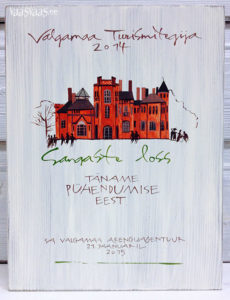 vaasjaas.ee
Valgamaa Turismitegija
2014
Sangaste loss
TÄNAME
PÜHENDUMISE
EEST
SA VALGAMAA ARENGUAGENTUUR
21 JAANUARIL
2015